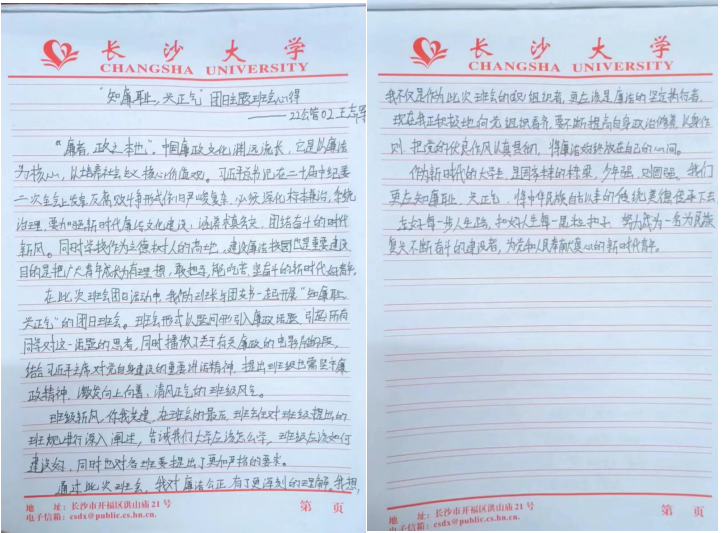 长沙大学
CHANGSHA UNIVERSITY
"知廉耻，兴正气"团日主题班会心得
——22公管02 王
"廉者，政之本也"，中国廉政文化渊远流长，它是以廉洁
为核心，以培养社会主义核心价值观。习近平书记在二十届中纪委
二次全会上发表反腐败斗争形式依旧严峻复杂，必须深化标本兼治，系统
治理，要加强新时代廉洁文化建设，涵养求真务实，团结奋斗的时代
新风。同时学校作为立德树人的高地，建设廉洁校园也是重要建设
目的是把广大青年成为有理想，敢担当，能吃苦，坚奋斗的新时代好青年。
在此次班会团日活动中，我们班班长与团支书一起开展"知廉耻，
兴正气"的团日班会。班会形式以提问形引入廉政话题，引起所有
同学对这一话题的思考，同时播放了关于有关廉政的电影片段，
结合习近平主席对党自身建设的重要讲话精神，提出班级也需坚守廉
政精神，激发向上向善、清风正气的班级风气。
班级新风，你我共建，在班会的最后，班会针对班级提出的
班规进行深入阐述，告诫我们大学应该怎么学，班级应该如何
建设好，同时也对各班委提出了更加严格的要求。
通过此次班会，我对廉洁公正有了更深刻的理解。我想，
地 址：长沙市开福区洪山庙21号
电子信箱：csdx@public.cs.hn.cn.
第 页
长沙大学
CHANGSHA UNIVERSITY
我不仅是作为此次班会的组织者，更应该是廉洁的坚定执行者，
现在我正积极地向党组织看齐，要不断提高自身政治修养，以身作
则，把党的优良作风认真贯彻，将廉洁始终放在自己的心间。
作为新时代的大学生，是国家未来的栋梁，少年强，则国强。我们
更应知廉耻，兴正气，将中华民族自古以来的传统美德传承下去
走好每一步人生路，扣好人生每一层粒扣子，努力成为一名为民族
复兴不断奋斗的建设者，为党和人民有奉献爱心的新时代青年。
地 址：长沙市开福区洪山庙21号
电子信箱：csdx@public.cs.hn.cn.
第 页